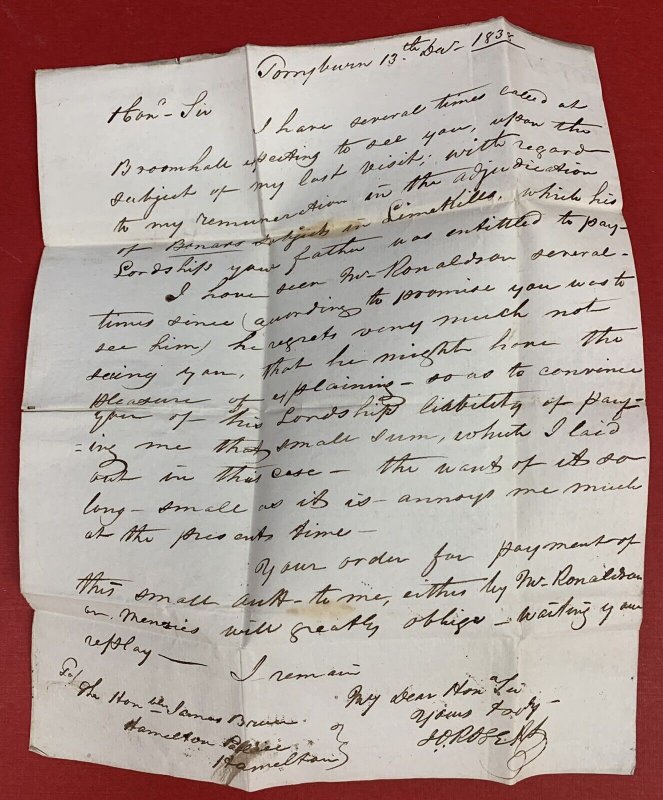 Torryburn 13th Decr 1838
Honl Sir
I have several times called at
Broomhall expecting to see you, upon the
subject of my last visit; with regard
to my remuneration in the adjudication
of Bonars subjects in LimeKills, which his
Lordship your father was entitled to pay—
I have seen Mr Ronaldson several—
times since (according to promise you was to
see him) he regrets very much not
seeing you, that he might have the
pleasure of explaining — so as to convince
you of his Lordships liability of pay-
=ing me that small sum, which I laid
out in this case — the want of it so
long — small as it is — annoys me much
at the present time —
Your order for payment of
this small amt — to me, either by Mr Ronaldson
or Menzies will greatly oblige — waiting your
replay —
I remain
My Dear Honl Sir
Yours truly
To/
The Honble James Bruce
Hamelton Palace
Hamelton